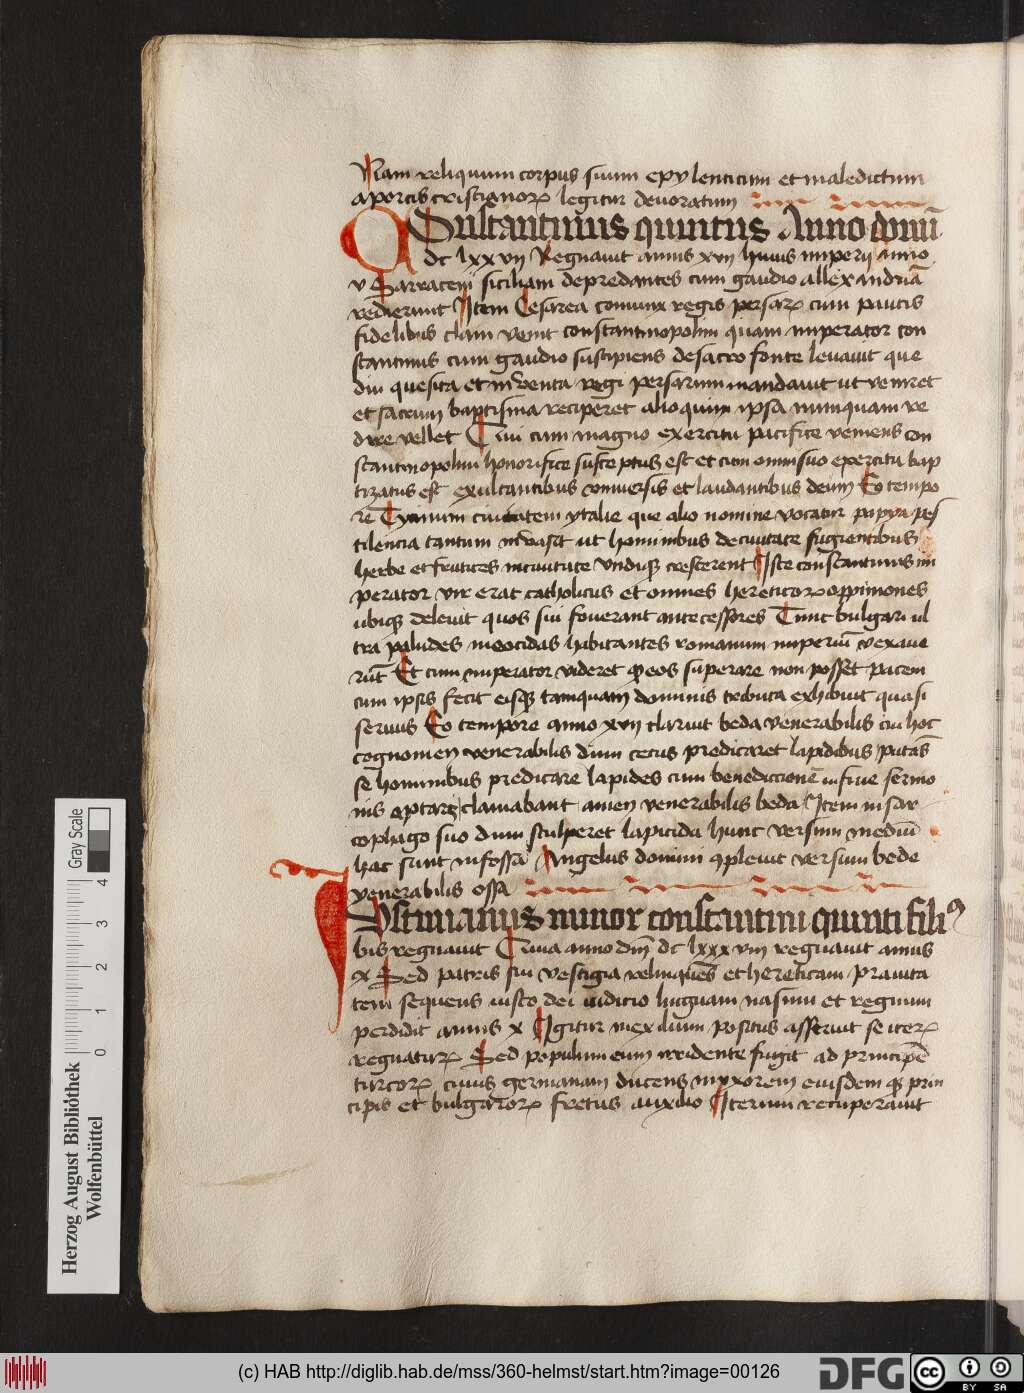 Nam reliquum corpus suum epylenticum et maledictum
a porcis cristianorꝝ legitur deuoratum
Onstantinus quintus Anno domī
dc lxxvij Regnauit annis xvij huius imperij anno
v Sarraceni siciliam depredantes cum gaudio allexandriā
redierunt Item Cesarea coniunx regis persarꝝ cum paucis
fidelibus clam venit constantinopolim quam imperator con
stantinus cum gaudio suscipiens de sacro fonte leuauit que
diu quesita et inuenta regi persarum mandauit ut veniret
et sacrum baptisma reciperet alioquim ipsa numquam re
dire vellet Qui cum magno exercitu pacifice veniens con
stantinopolim honorifice susceptus est et cum omni suo exercitu bap
tizatus est exultantibus conuersis et laudantibus deum Eo tempo
re Tycinum ciuitatem ytalie que alio nomine vocatur papya pes
tilencia tantum inuasit ut hominibus de ciuitate fugientibus
herbe et frutices in ciuitate vndiqꝫ crescerent Iste constantinus im
perator vir erat catholicus et omnes hereticorꝝ oppiniones
ubiqꝫ deleuit quos sui fouerant antecessores Tunc bulgari ul
tra paludes meocidas habitantes romanum imperiū vexaue
rūt Et cum imperator videret qꝫ eos superare non posset pacem
cum ipsis fecit eisqꝫ tamquam dominis tributa exhibuit quasi
seruus Eo tempore anno xvij claruit beda venerabilis cui hoc
cognomen venerabilis dum cecus predicaret lapidibus putās
se hominibus predicare lapides cum benedictionē in fine sermo
nis optaret clamabant amen venerabilis beda Item in sar
cophago suo dum sculperet lapicida hunc versum mediū
hac sunt in fossa Angelus domini ꝯpleuit versum bede
venerabilis ossa
Iustinianus minor constantini quinti filiꝰ
bis regnauit Circa anno dn̄i dc lxxxviij regnauit annis
x Sed patris sui vestigia relinquēs et hereticam prauita
tem sequens iusto dei iudicio linguam nasum et regnum
perdidit annis x Igitur in exilium positus asseruit se iterꝝ
regnaturꝝ Sed populum eum irridente fugit ad principē
turcorꝝ cuius germanam ducens in vxorem eiusdem qꝫ prin
cipis et bulgarorꝝ fretus auxilio Iterum recuperauit
Gray Scale
0 1 2 3 4
Herzog August Bibliothek
Wolfenbüttel
(c) HAB http://diglib.hab.de/mss/360-helmst/start.htm?image=00126
DFG
cc BY SA